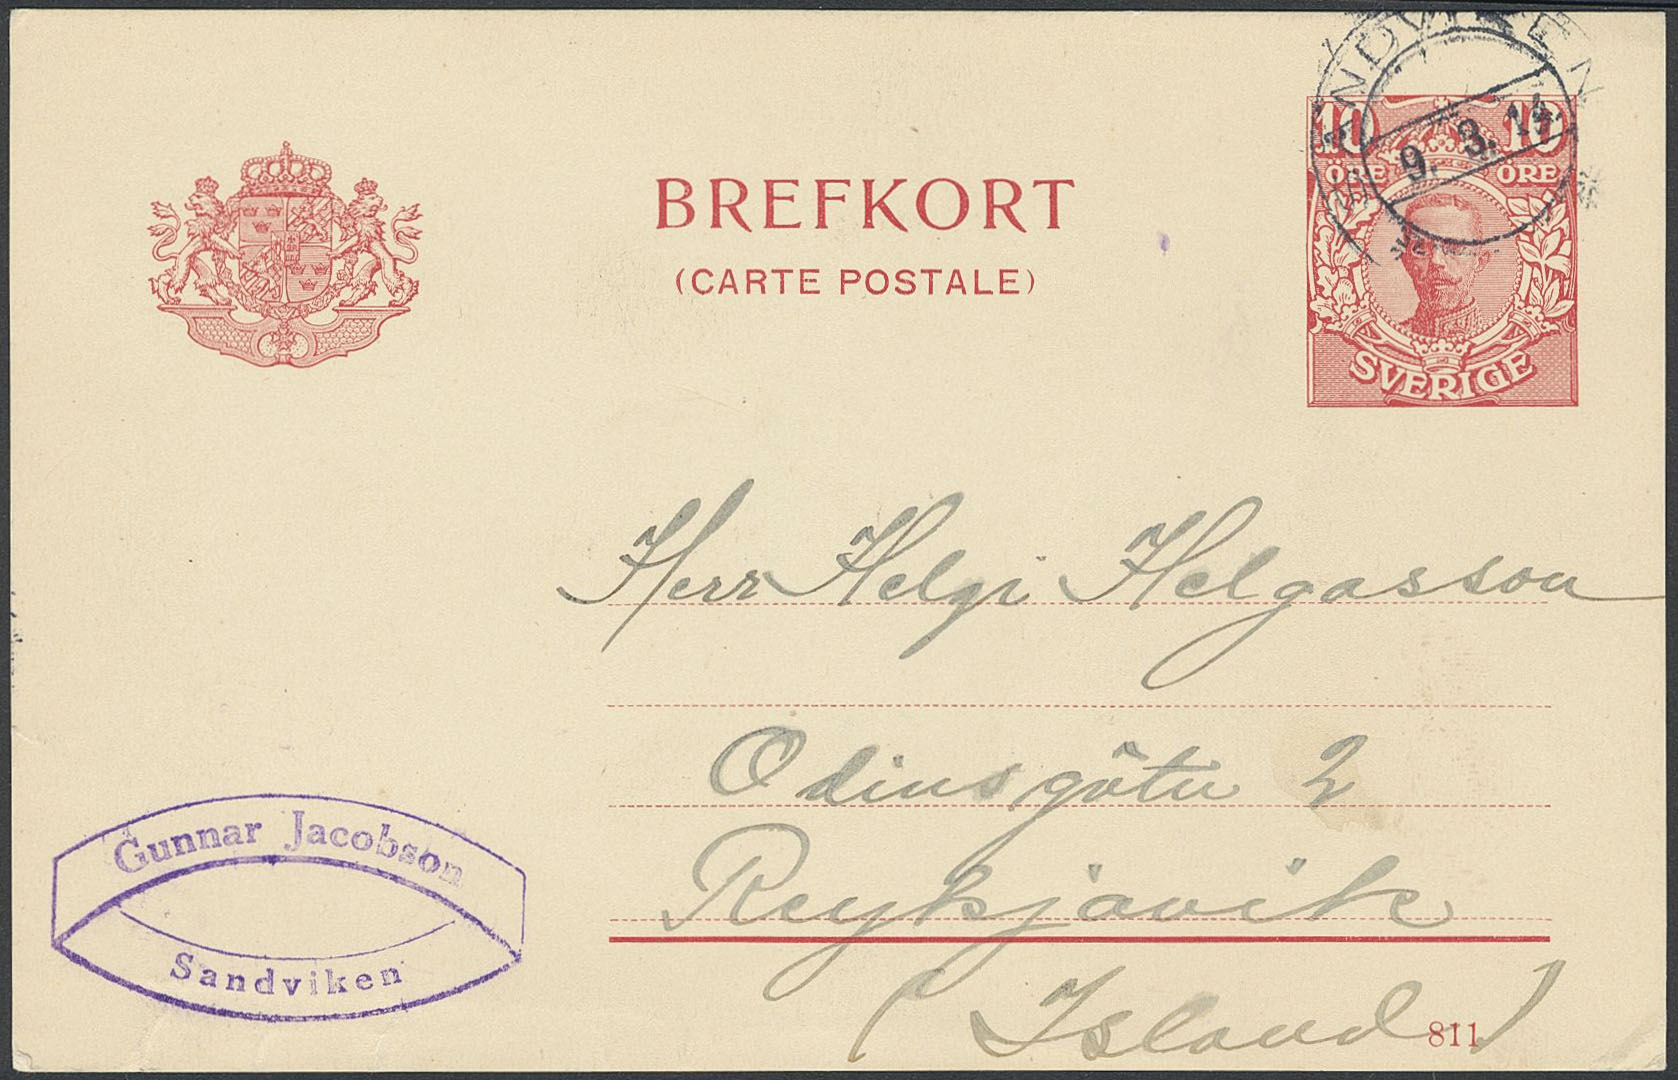 SANDVIKEN
9. 3. 14
10 10
ÖRE ÖRE
SVERIGE
BREFKORT
(CARTE POSTALE)
Herr Helgi Helgasson
Odinsgötu 2
Reykjavik
(Island)
Gunnar Jacobson
Sandviken
811